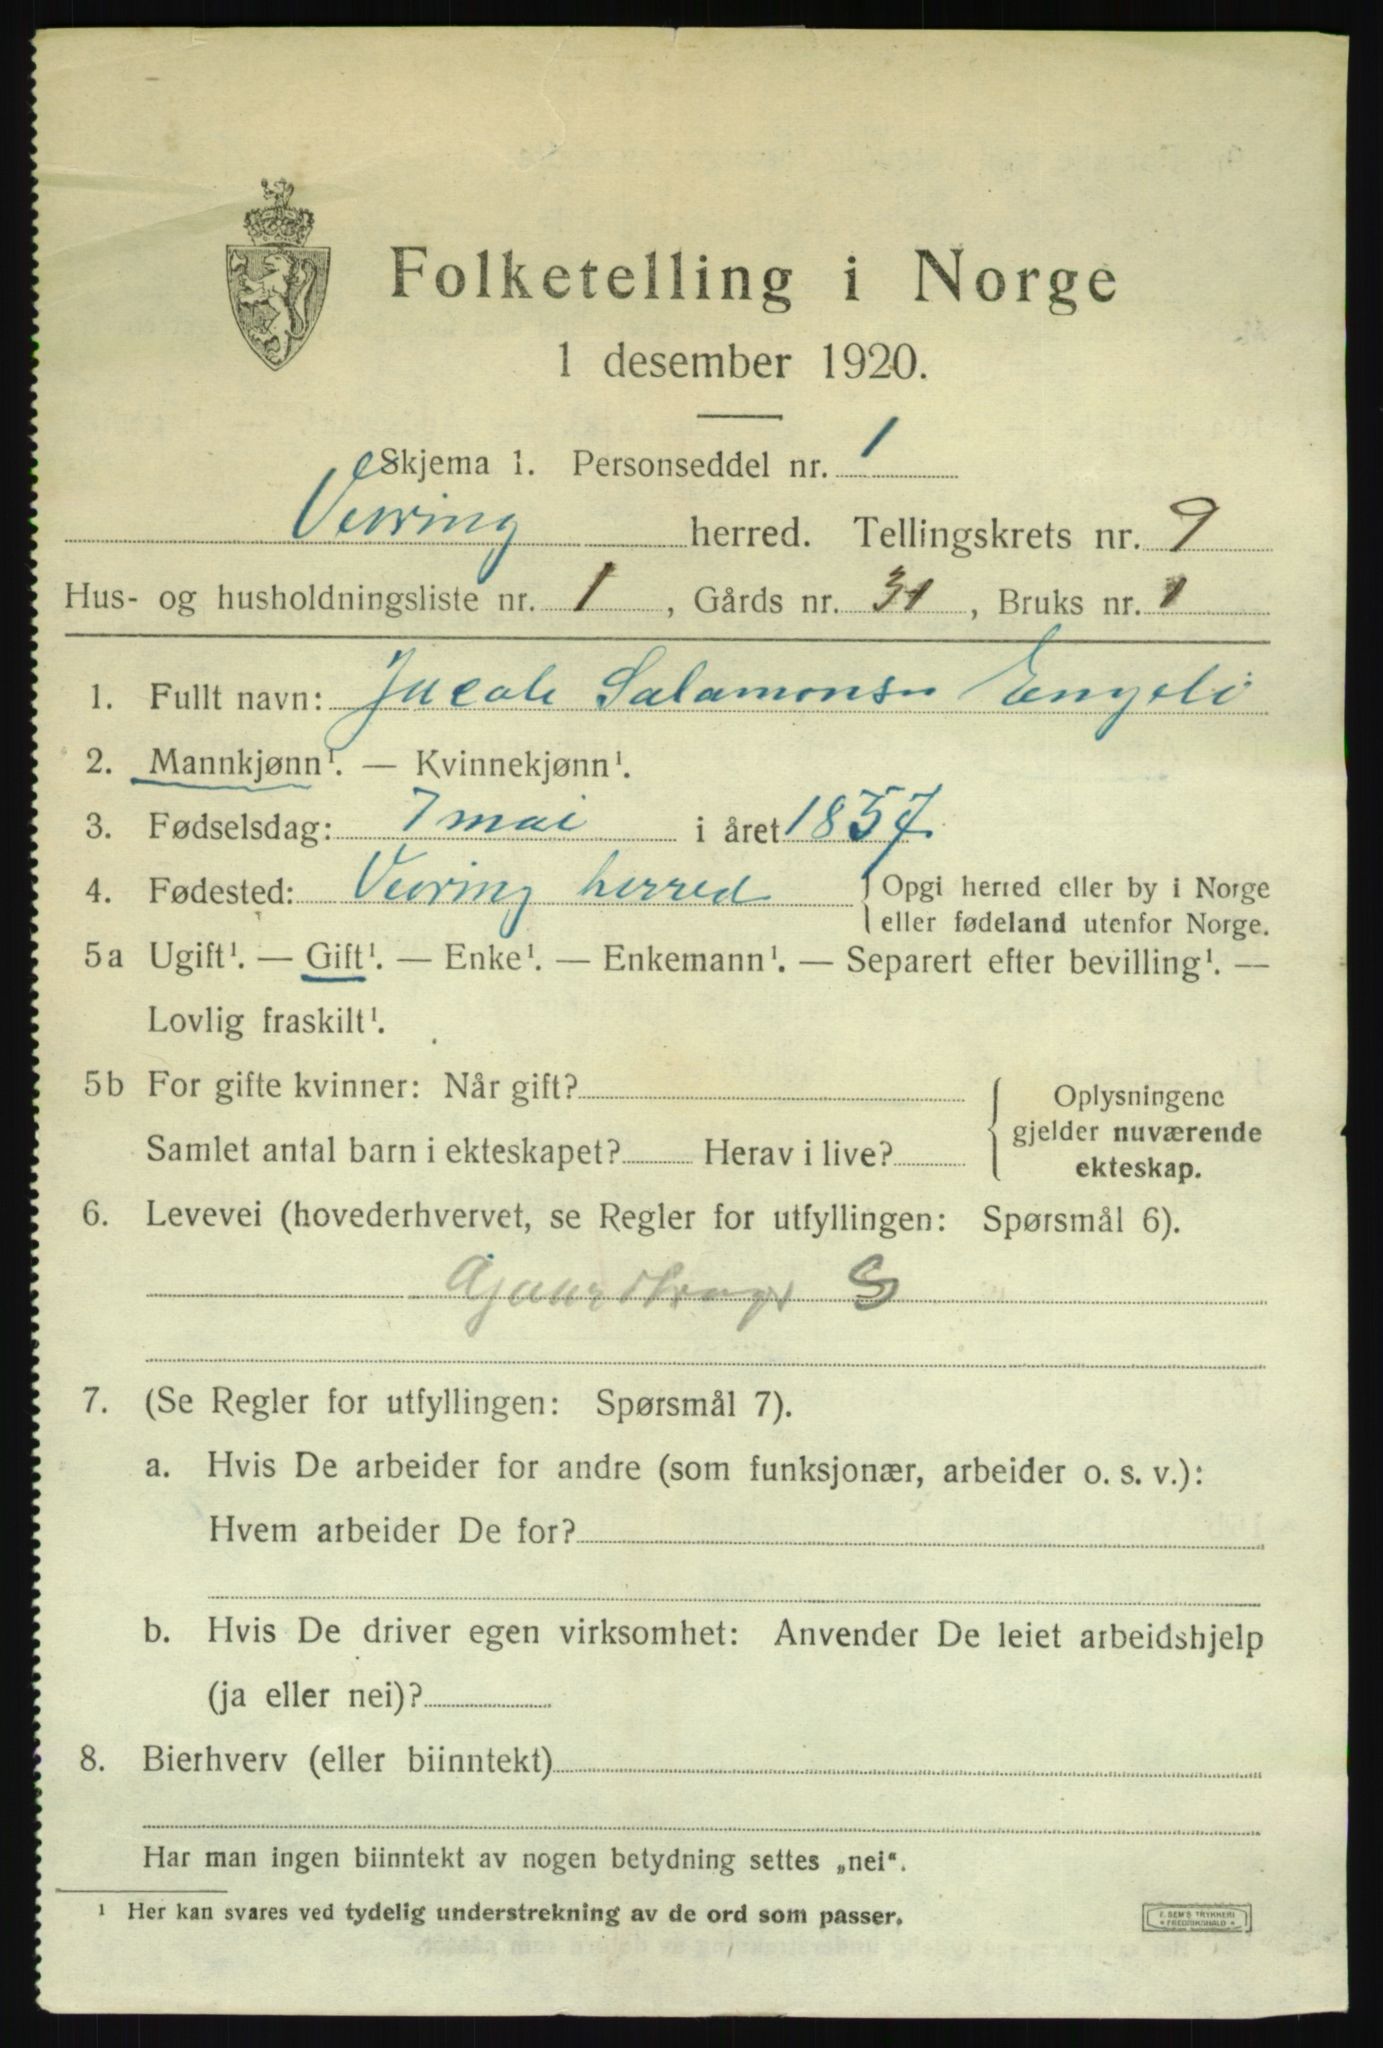 Folketelling i Norge
1 desember 1920.
Skjema 1. Personseddel nr. 1
Vevring herred. Tellingskrets nr. 9
Hus- og husholdningsliste nr. 1, Gårds nr. 31, Bruks nr. 1
1. Fullt navn: Jacob Salamonsen Engebø
2. Mannkjønn¹. — Kvinnekjønn¹.
3. Fødselsdag: 7 mai i året 1857.
4. Fødested: Vevring herred { Opgi herred eller by i Norge
eller fødeland utenfor Norge.
5a Ugift¹. — Gift¹. — Enke¹. — Enkemann¹. — Separert efter bevilling¹. —
Lovlig fraskilt¹.
5b For gifte kvinner: Når gift?
Samlet antal barn i ekteskapet? Herav i live?
Oplysningene
gjelder nuværende
ekteskap.
6. Levevei (hovederhvervet, se Regler for utfyllingen: Spørsmål 6).
S
7. (Se Regler for utfyllingen: Spørsmål 7).
a. Hvis De arbeider for andre (som funksjonær, arbeider o. s. v.):
Hvem arbeider De for?
b. Hvis De driver egen virksomhet: Anvender De leiet arbeidshjelp
(ja eller nei)?
8. Bierhverv (eller biinntekt)
Har man ingen biinntekt av nogen betydning settes „nei“.
¹ Her kan svares ved tydelig understrekning av de ord som passer.
E. SEM'S TRYKKERI
FREDRIKSHALD